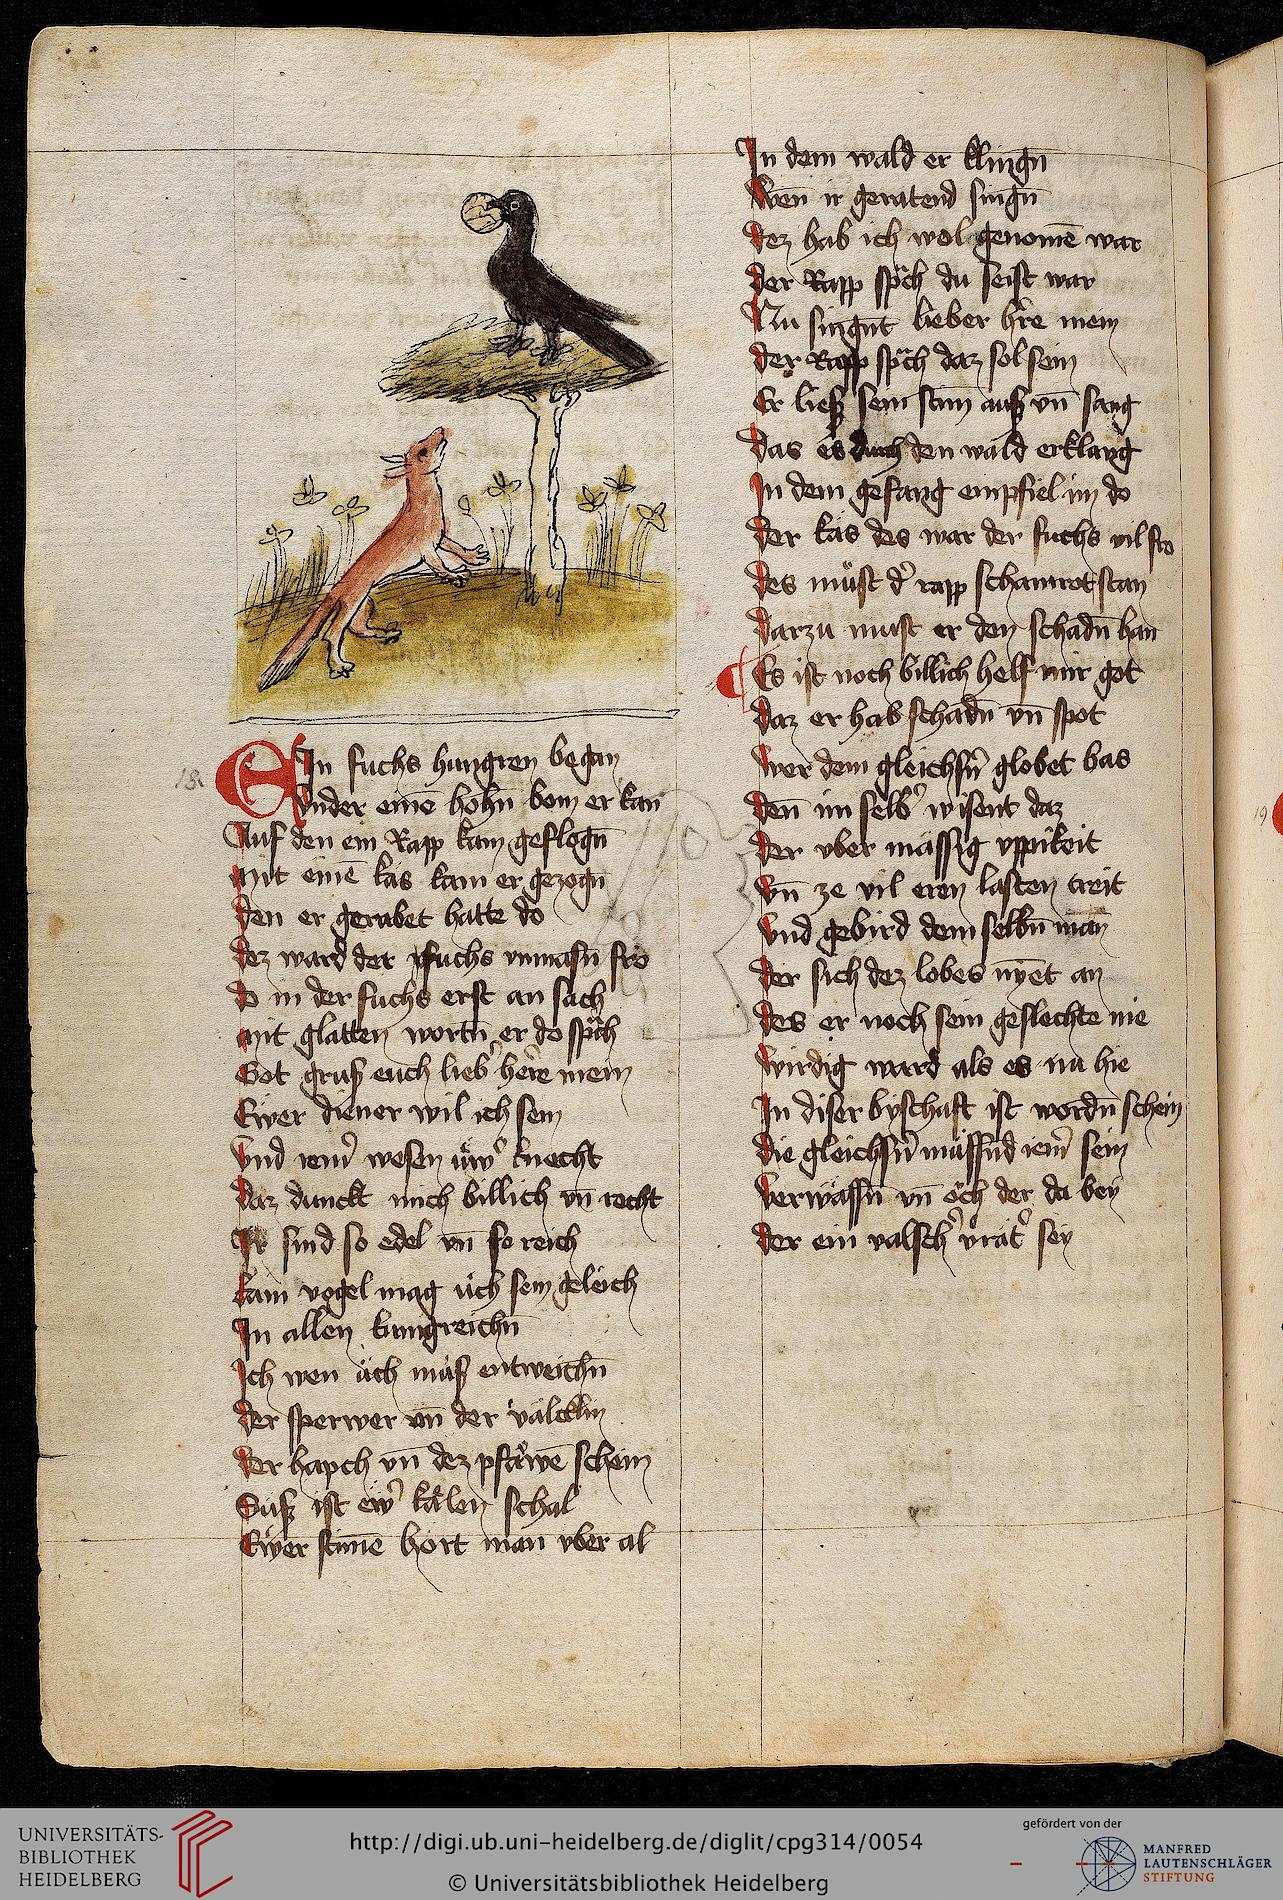 18.
EIn fuchs hungren began
Vnder eine͞ hohn͞ bom er kan
Auf den ein Rapp kam geflogn͞
mit eine͞ käs kam er gezogn͞
den er gerabet hatte do
dez ward der fuchs vnmasn͞ fro
do in der fuchs erst an sach
mit glatten wortn͞ er do sp͛ch
Got grus euch lieb͛ her͛e mein
Ewer diener wil ich sein
Vnd iem͛ wesen üw͛ knecht
daz dunckt mich billich vn͞ recht
Ir sind so edel vn͞ so reich
kain vogel mag üch sein geleich
In allen kungreichn͞
Ich wen äch müs entweichn͞
der sperwer vn͞ der välcklin
der hapch vn͞ dez pfäwe͞ schein
Süß ist ew͛ kälen schal
Ewer stim͞e hört man vber al
In dem wald er klingn͞
Wen͞ ir geratend singn͞
dez hab ich wol genom͞e war
der Rapp sp͛ch du seist war
Nu singnt lieber h͛re mein
der Rapp sp͛ch daz sol sein
Er liess sein stim͞ auss vn͞ sang
das es durch den wald erklang
In dem gesang empfiel im do
der käs des war der fuchs vil fro
des müst d͛ rapp schamrot stan
darzu must er den schadn͞ han
Es ist noch billich helf mir got
daz er hab schadn͞ vn͞ spot
wer dem gleichsn͛ globet bas
den͞ im selb͛ wisent daz
der vber mässig vppikeit
vn͞ ze vil eren lasten treit
vnd gebird dem selbn͞ man͞
der sich dez lobes nyе͞t an
des er noch sein geslechte nie
wirdig ward als es nu hie
In diser byschaft ist wordn͞ schein
die gleichsn͛ müssn͞d iem͛ sein
verwässn͞ vn͞ öch der da bey
der ein valsch͛ v͛rät͛ sey
19
UNIVERSITÄTS-
BIBLIOTHEK
HEIDELBERG
http://digi.ub.uni-heidelberg.de/diglit/cpg314/0054
© Universitätsbibliothek Heidelberg
gefördert von der
MANFRED
LAUTENSCHLÄGER
STIFTUNG